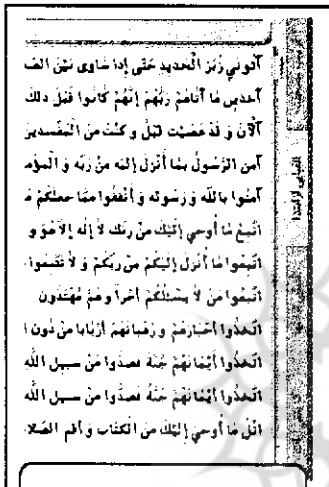 آتوني زُبَرَ الْحَديدِ حَتّى إِذا ساوى بَيْنَ الصَّ
آخِذينَ ما آتاهُمْ رَبُّهُمْ إِنَّهُمْ كانُوا قَبْلَ ذلِكَ
آلْآنَ وَ قَدْ عَصَيْتَ قَبْلُ وَ كُنْتَ مِنَ الْمُفْسِدينَ
آمَنَ الرَّسُولُ بِما أُنْزِلَ إِلَيْهِ مِنْ رَبِّهِ وَ الْمُؤْمِ
آمِنُوا بِاللّهِ وَ رَسُولِهِ وَ أَنْفِقُوا مِمّا جَعَلَكُمْ مُ
اتَّبِعْ ما أُوحِيَ إِلَيْكَ مِنْ رَبِّكَ لا إِلهَ إِلاّ هُوَ وَ
اتَّبِعُوا ما أُنْزِلَ إِلَيْكُمْ مِنْ رَبِّكُمْ وَ لا تَتَّبِعُوا
اتَّبِعُوا مَنْ لا يَسْئَلُكُمْ أَجْراً وَ هُمْ مُهْتَدُونَ
اتَّخَذُوا أَحْبارَهُمْ وَ رُهْبانَهُمْ أَرْباباً مِنْ دُونِ ا
اتَّخَذُوا أَيْمانَهُمْ جُنَّةً فَصَدُّوا عَنْ سَبيلِ اللّهِ
اتَّخَذُوا أَيْمانَهُمْ جُنَّةً فَصَدُّوا عَنْ سَبيلِ اللّهِ
اتْلُ ما أُوحِيَ إِلَيْكَ مِنَ الْكِتابِ وَ أَقِمِ الصَّلا